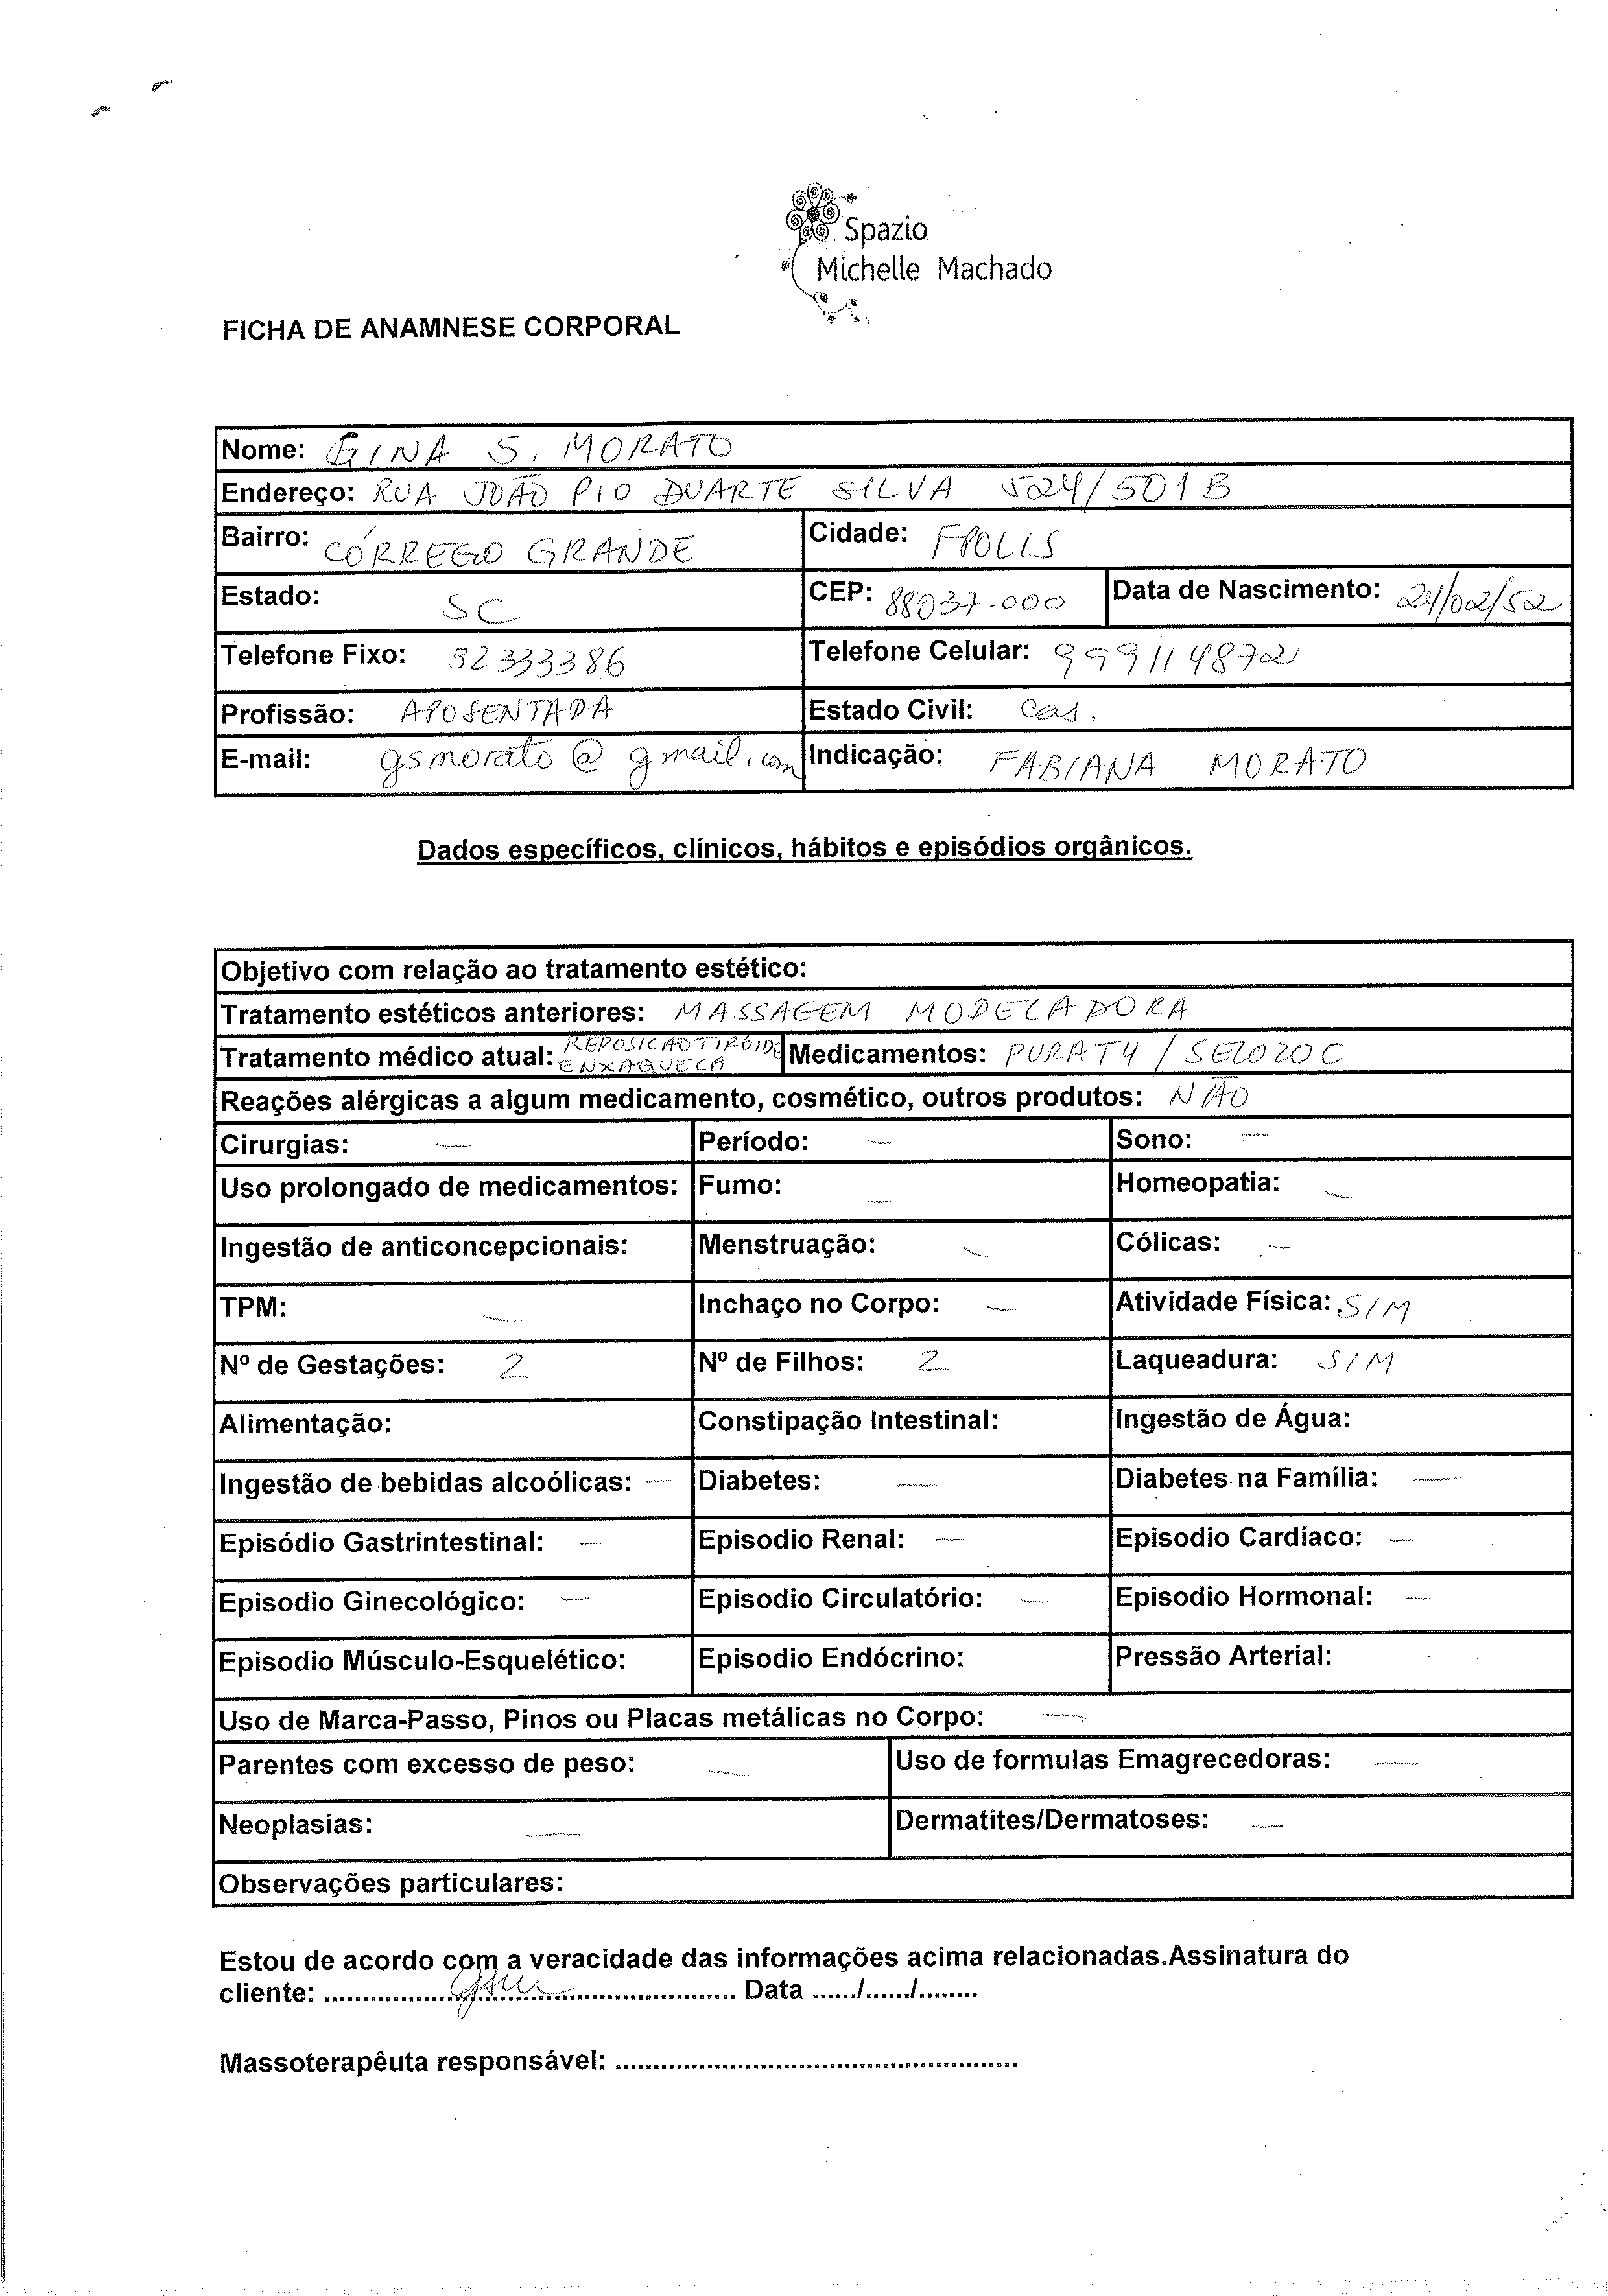 Spazio
Michelle Machado
FICHA DE ANAMNESE CORPORAL
Nome: GINA S. MORATO
Endereço: RUA JOÃO PIO DUARTE SILVA 524/501B
Bairro: CÓRREGO GRANDE Cidade: FPOLIS
Estado: SC CEP: 88037-000 Data de Nascimento: 24/02/52
Telefone Fixo: 32333386 Telefone Celular: 999114872
Profissão: APOSENTADA Estado Civil: Cas.
E-mail: gsmorato@gmail.com Indicação: FABIANA MORATO
Dados específicos, clínicos, hábitos e episódios orgânicos.
Objetivo com relação ao tratamento estético:
Tratamento estéticos anteriores: MASSAGEM MODELADORA
Tratamento médico atual: REPOSICAO TIROIDE ENXAQUECA Medicamentos: PURAT4 / SELOZOC
Reações alérgicas a algum medicamento, cosmético, outros produtos: NÃO
Cirurgias: — Período: — Sono: —
Uso prolongado de medicamentos: Fumo: — Homeopatia: —
Ingestão de anticoncepcionais: Menstruação: — Cólicas: —
TPM: — Inchaço no Corpo: — Atividade Física: SIM
Nº de Gestações: 2 Nº de Filhos: 2 Laqueadura: SIM
Alimentação: Constipação Intestinal: Ingestão de Água:
Ingestão de bebidas alcoólicas: — Diabetes: — Diabetes na Família: —
Episódio Gastrintestinal: — Episodio Renal: — Episodio Cardíaco: —
Episodio Ginecológico: — Episodio Circulatório: — Episodio Hormonal: —
Episodio Músculo-Esquelético: Episodio Endócrino: Pressão Arterial:
Uso de Marca-Passo, Pinos ou Placas metálicas no Corpo: —
Parentes com excesso de peso: — Uso de formulas Emagrecedoras: —
Neoplasias: — Dermatites/Dermatoses: —
Observações particulares:
Estou de acordo com a veracidade das informações acima relacionadas.Assinatura do
cliente: .................................................... Data ....../....../........
Massoterapêuta responsável: ....................................................